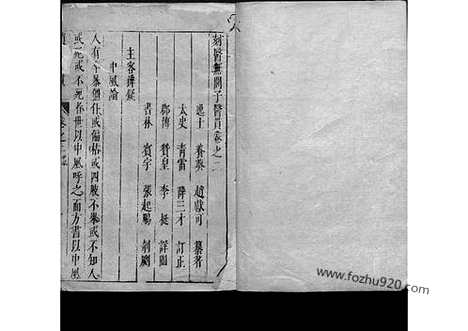 刻醫無閭子醫貫卷之二
逸士 養葵 趙獻可 纂著
太史 青雷 薛三才 訂正
郡博 贊皇 李 挺 詳閱
書林 賓宇 張起鵬 刻劂
主客辨疑
中風論
人有卒暴僵仆或偏枯或四肢不舉或不知人
或死或不死者世以中風呼之而方書以中風
www.fozhu920.com